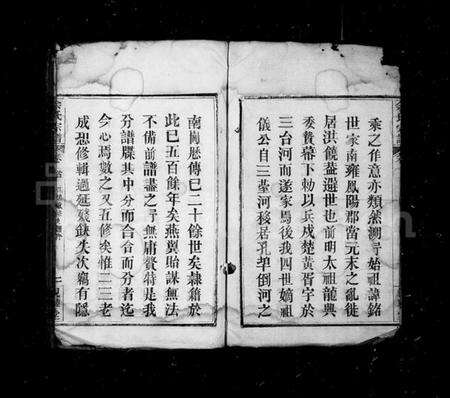 乘之作意亦類然溯予始祖諱銘
世家南雍鳳陽郡當元末之亂徙
居洪饒蓋避世也前明太祖龍興
委贄幕下勅以兵戍楚黃胥宇於
三台河而遂家焉後我四世嫡祖
儀公自三臺河移居孔垾倒河之
南崗歷傳已二十餘世矣隸籍於
此已五百餘年矣燕翼貽謀無法
不備前譜盡之予無庸贅特是我
分譜牒其中分而合合而分者迄
今心焉數之又五修矣惟二三老
成想修輯過延殘缺失次竊有隱